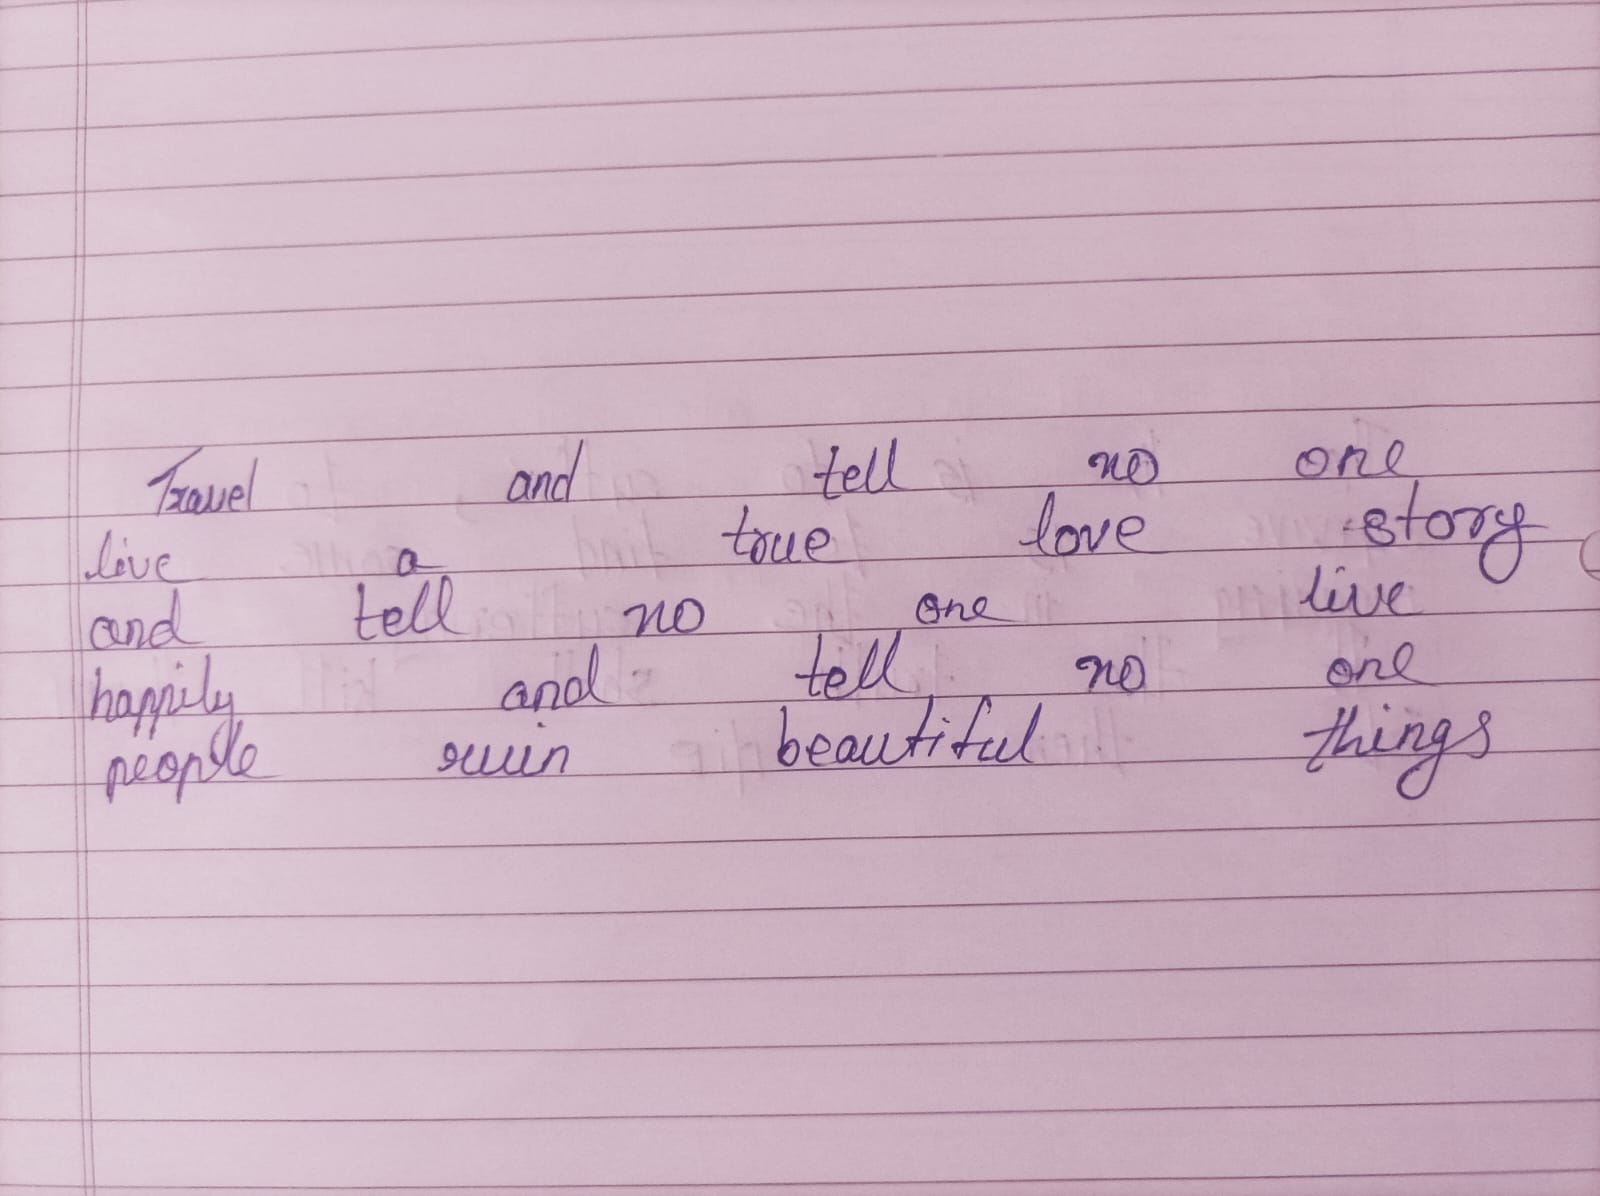 Travel and tell no one
live a true love story
and tell no one live
happily and tell no one
people ruin beautiful things